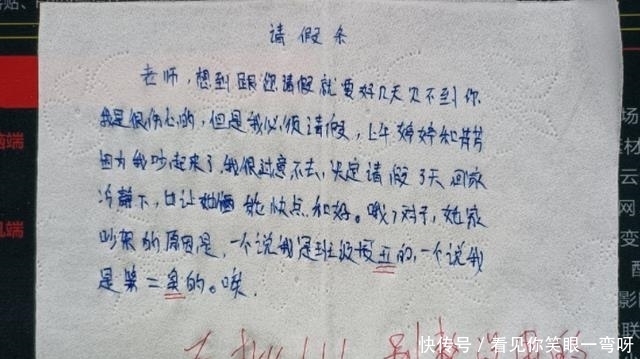 请假条
老师,想到跟您请假就要好几天见不到你
我是很伤心的,但是我必须请假,上午婷婷和芳芳
因为我吵起来了,我很过意不去,决定请假3天回家
冷静下,也让她俩能快点和好。哦,对了,她家
吵架的原因是,一个说我是班级最丑的,一个说我
是第二丑的。唉.
脑端
机端
场
云
网
配
快传号 / 看见你笑眼一弯呀